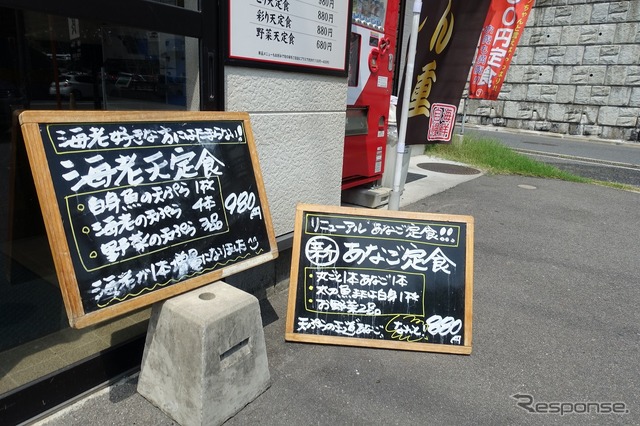 海老好きな方にはたまらない!!
海老天定食
・白身魚の天ぷら 1枚
・海老の天ぷら 4本
・野菜の天ぷら 3品
980円
海老が1本増量になりました
リニューアル あなご定食!!!
新 あなご定食
・丸ごと1本あなご1本
・太刀魚または白身1枚
・お野菜2品
天ぷらの王道あなご
なんと!
880円
880円
彩り天定食 880円
野菜天定食 680円
重
自慢
円定食
Response.